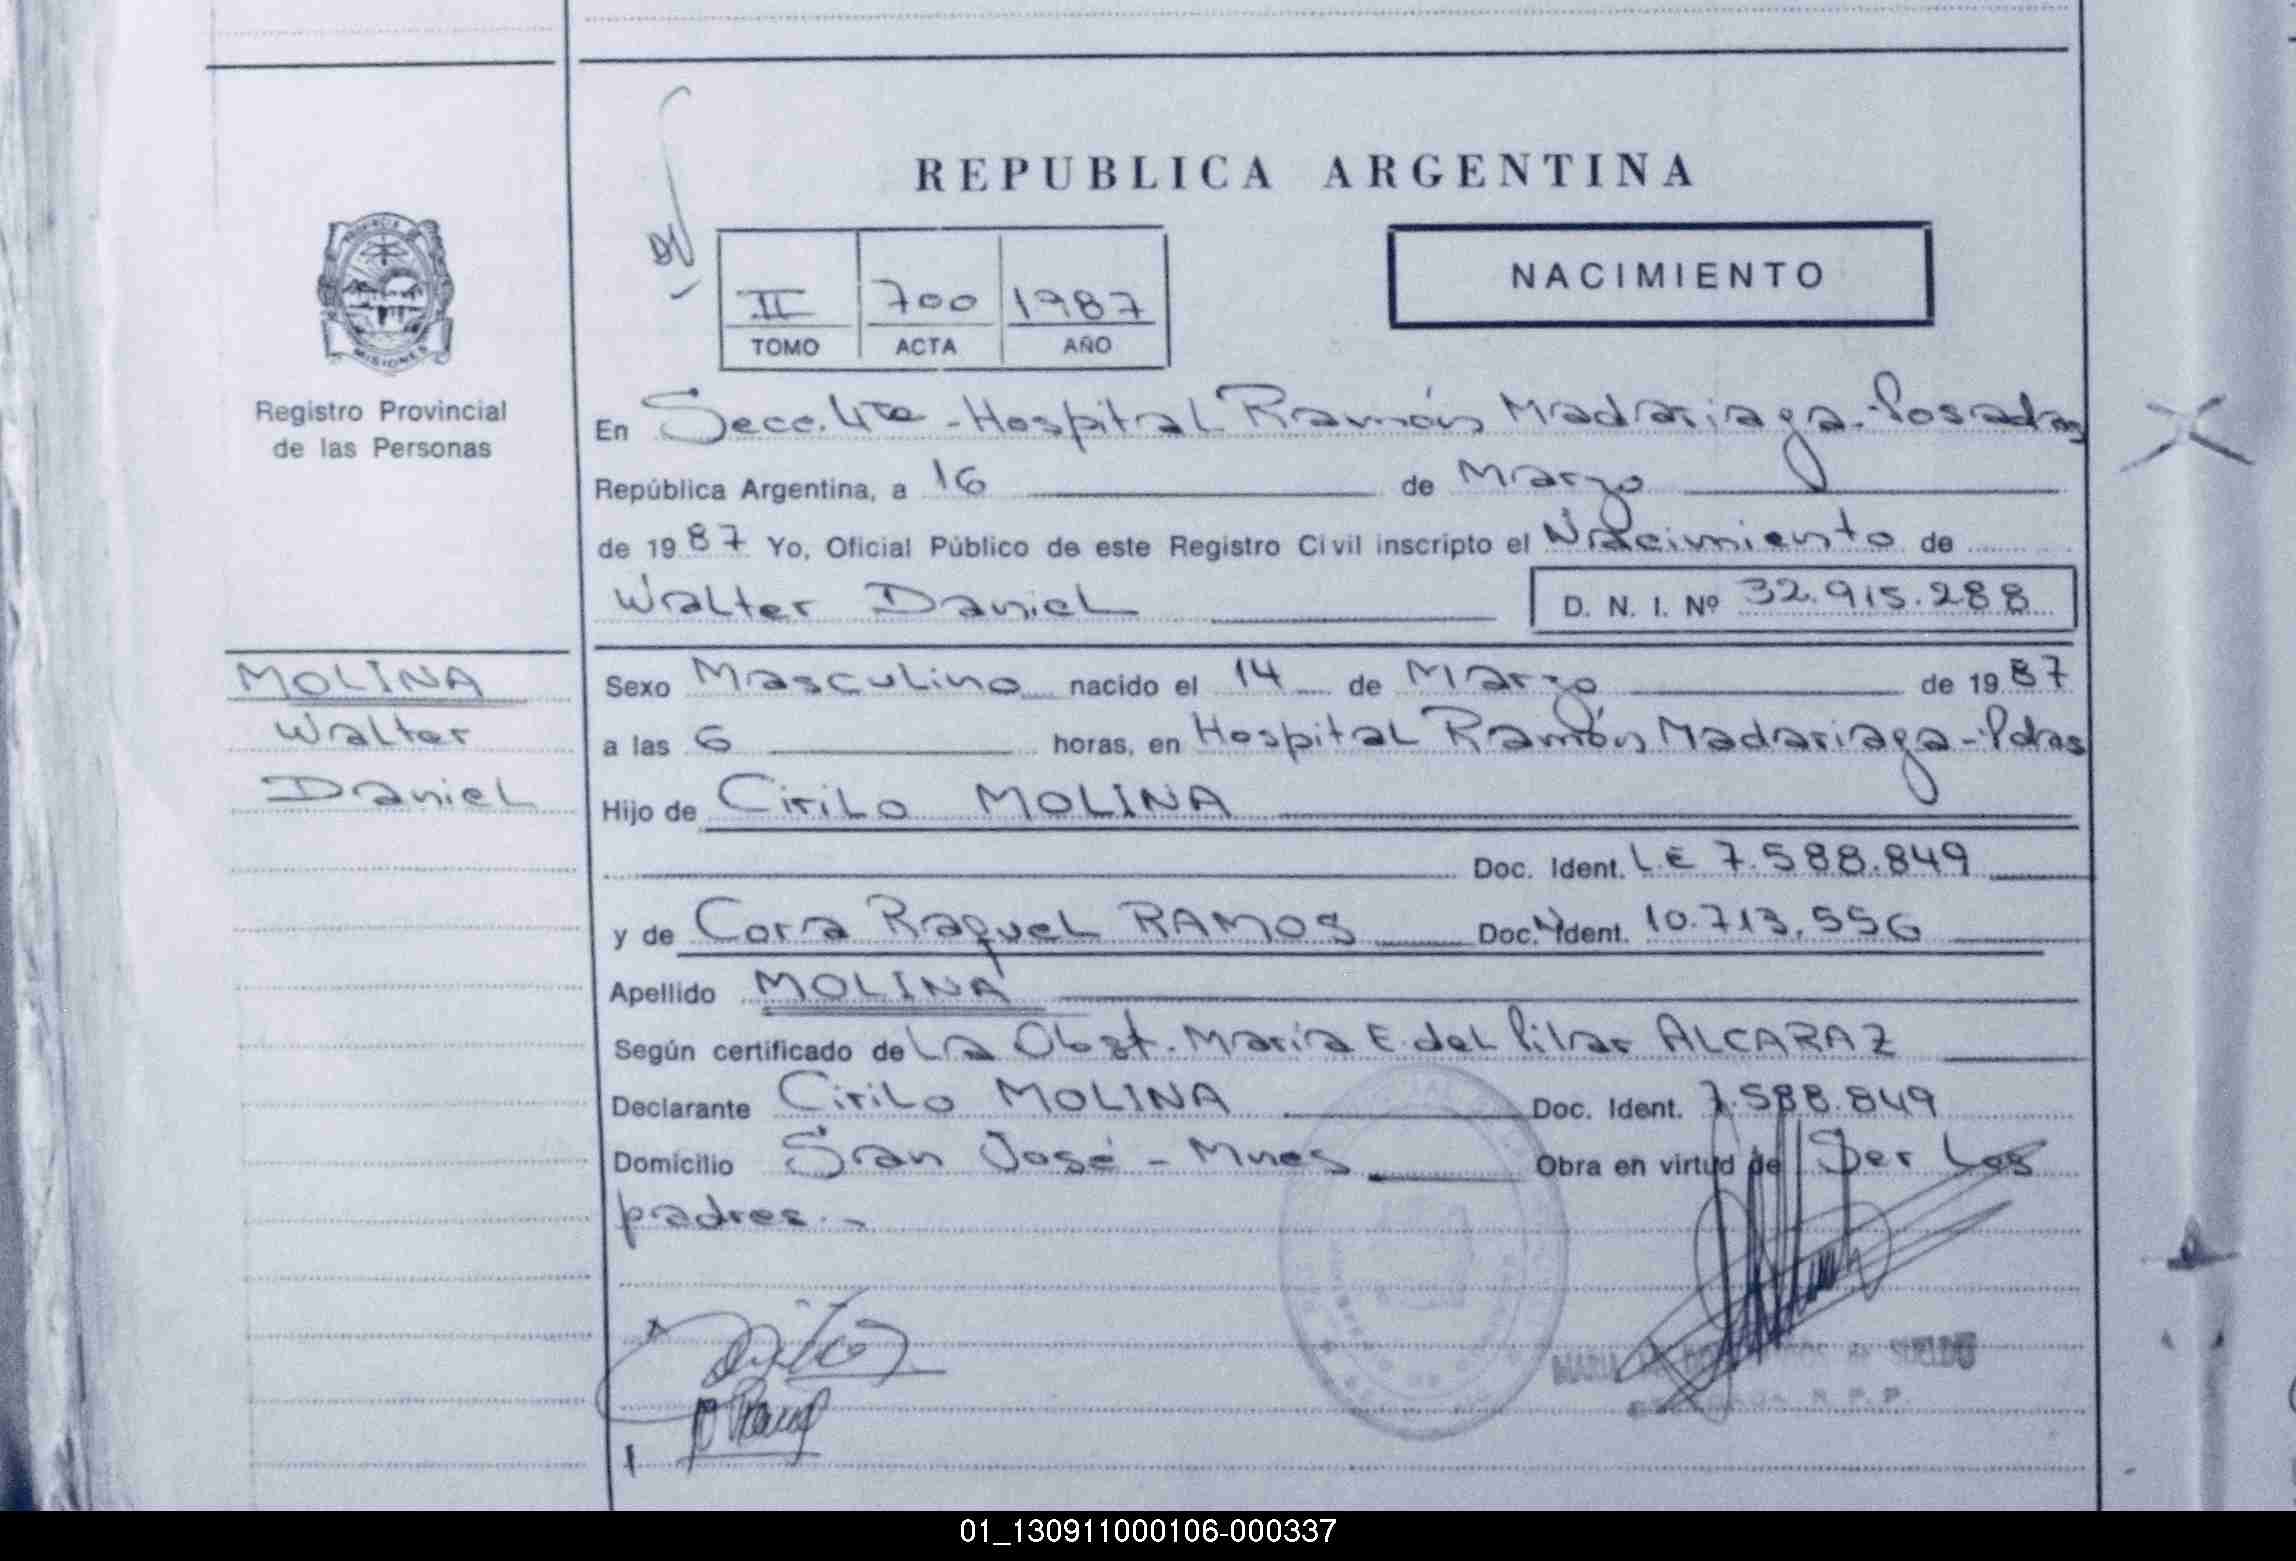 REPUBLICA ARGENTINA
NACIMIENTO
II 700 1987
TOMO ACTA AÑO
PROVINCIA DE
MISIONES
Registro Provincial
de las Personas
En Secc. 4ta - Hospital Ramón Madariaga - Posadas
República Argentina, a 16 de Marzo
de 1987 Yo, Oficial Público de este Registro Civil inscripto el Nacimiento de
Walter Daniel D. N. I. Nº 32.915.288
MOLINA
Walter
Daniel
Sexo Masculino nacido el 14 de Marzo de 1987
a las 6 horas, en Hospital Ramón Madariaga - Pdas
Hijo de Cirilo MOLINA
Doc. Ident. L.E 7.588.849
y de Cora Raquel RAMOS Doc. Ident. 10.713.556
Apellido MOLINA
Según certificado de La Obst. María E. del Pilar ALCARAZ
Declarante Cirilo MOLINA Doc. Ident. 7.588.849
Domicilio San José - Mnes Obra en virtud de Ser Los
padres.-
01_130911000106-000337